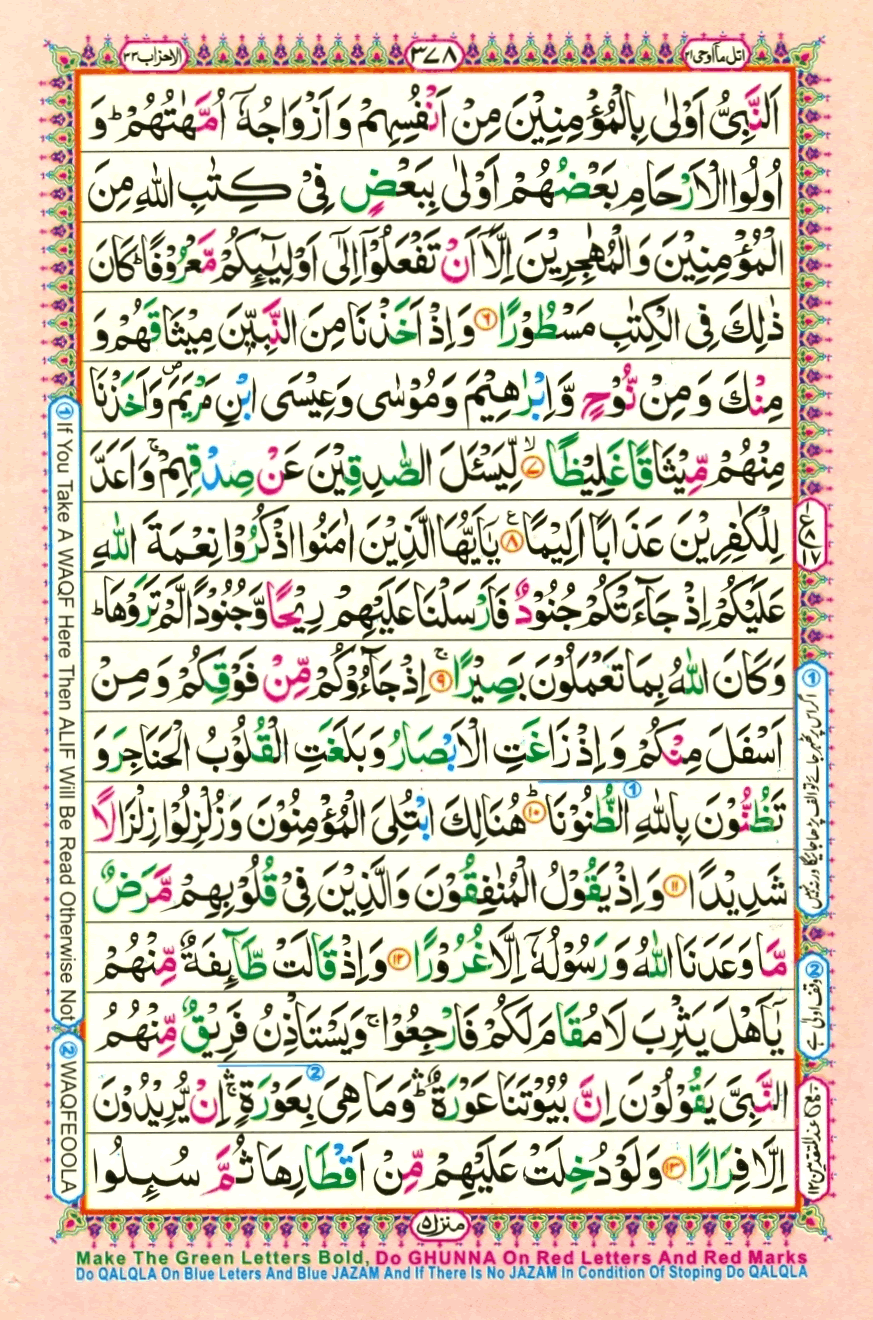 اتل مآ اوحی ۲۱
۳۷۸
الاحزاب ۳۳
اَلنَّبِىُّ اَوْلٰى بِالْمُؤْمِنِيْنَ مِنْ اَنْفُسِهِمْ وَاَزْوَاجُهٗۤ اُمَّهٰتُهُمْ ؕ وَ
اُولُوا الْاَرْحَامِ بَعْضُهُمْ اَوْلٰى بِبَعْضٍ فِىْ كِتٰبِ اللّٰهِ مِنَ
الْمُؤْمِنِيْنَ وَالْمُهٰجِرِيْنَ اِلَّاۤ اَنْ تَفْعَلُوْۤا اِلٰٓى اَوْلِيٰٓٮِٕكُمْ مَّعْرُوْفًا ؕ كَانَ
ذٰلِكَ فِى الْكِتٰبِ مَسْطُوْرًا ۶ وَاِذْ اَخَذْنَا مِنَ النَّبِيّٖنَ مِيْثَاقَهُمْ وَ
مِنْكَ وَمِنْ نُّوْحٍ وَّاِبْرٰهِيْمَ وَمُوْسٰى وَعِيْسَى ابْنِ مَرْيَمَ ۖ وَاَخَذْنَا
مِنْهُمْ مِّيْثَاقًا غَلِيْظًا ۙ ۷ لِّيَسْئَلَ الصّٰدِقِيْنَ عَنْ صِدْقِهِمْ ۚ وَاَعَدَّ
لِلْكٰفِرِيْنَ عَذَابًا اَلِيْمًا ۸ ع يٰۤاَيُّهَا الَّذِيْنَ اٰمَنُوا اذْكُرُوْا نِعْمَةَ اللّٰهِ
عَلَيْكُمْ اِذْ جَآءَتْكُمْ جُنُوْدٌ فَاَرْسَلْنَا عَلَيْهِمْ رِيْحًا وَّجُنُوْدًا لَّمْ تَرَوْهَا ؕ
وَكَانَ اللّٰهُ بِمَا تَعْمَلُوْنَ بَصِيْرًا ۚ ۹ اِذْ جَآءُوْكُمْ مِّنْ فَوْقِكُمْ وَمِنْ
اَسْفَلَ مِنْكُمْ وَاِذْ زَاغَتِ الْاَبْصَارُ وَبَلَغَتِ الْقُلُوْبُ الْحَنَاجِرَ وَ
تَظُنُّوْنَ بِاللّٰهِ الظُّنُوْنَا ① ؕ ۱۰ هُنَالِكَ ابْتُلِىَ الْمُؤْمِنُوْنَ وَزُلْزِلُوْا زِلْزَالًا
شَدِيْدًا ۱۱ وَاِذْ يَقُوْلُ الْمُنٰفِقُوْنَ وَالَّذِيْنَ فِىْ قُلُوْبِهِمْ مَّرَضٌ
مَّا وَعَدَنَا اللّٰهُ وَرَسُوْلُهٗۤ اِلَّا غُرُوْرًا ۱۲ وَاِذْ قَالَتْ طَّآٮِٕفَةٌ مِّنْهُمْ
يٰۤاَهْلَ يَثْرِبَ لَا مُقَامَ لَكُمْ فَارْجِعُوْا ۚ وَيَسْتَاْذِنُ فَرِيْقٌ مِّنْهُمُ
النَّبِىَّ يَقُوْلُوْنَ اِنَّ بُيُوْتَنَا عَوْرَةٌ ۛؕ وَمَا هِىَ بِعَوْرَةٍ ۛۚ ② اِنْ يُّرِيْدُوْنَ
اِلَّا فِرَارًا ۱۳ وَلَوْ دُخِلَتْ عَلَيْهِمْ مِّنْ اَقْطَارِهَا ثُمَّ سُٮِٕلُوا
منزل ۵
① If You Take A WAQF Here Then ALIF Will Be Read Otherwise Not
② WAQFEOOLA
② وقف اولیٰ ہے
Make The Green Letters Bold, Do GHUNNA On Red Letters And Red Marks
Do QALQLA On Blue Leters And Blue JAZAM And If There Is No JAZAM In Condition Of Stoping Do QALQLA